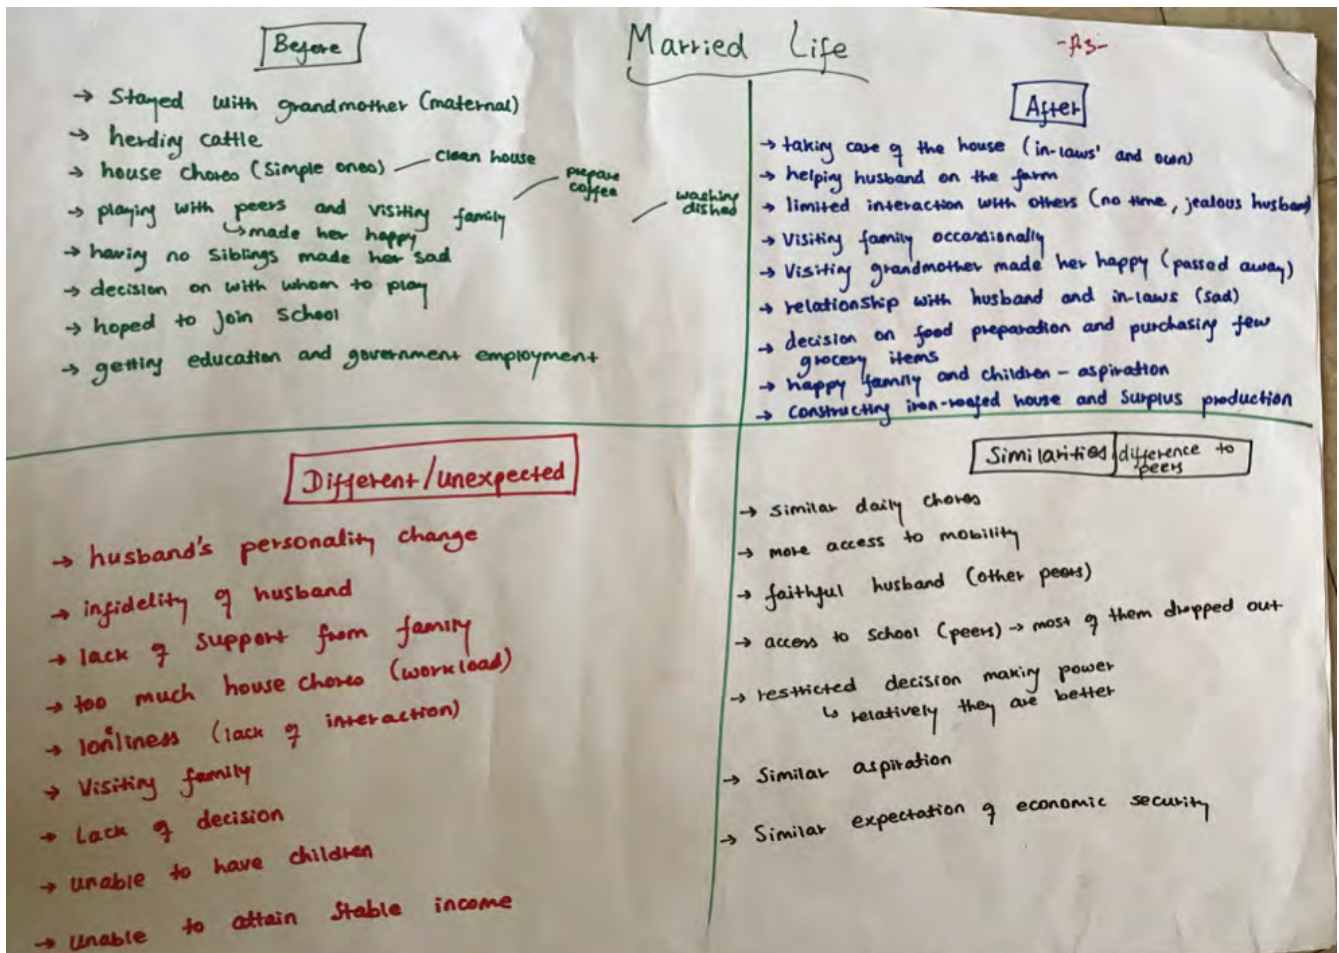 Married Life
-R3-
Before
→ Stayed with grandmother (maternal)
→ herding cattle
→ house chores (Simple ones) — clean house
prepare
coffee
washing
dished
→ playing with peers and visiting family
↳ made her happy
→ having no siblings made her sad
→ decision on with whom to play
→ hoped to join School
→ getting education and government employment
After
→ taking care of the house (in-laws' and own)
→ helping husband on the farm
→ limited interaction with others (no time, jealous husband
→ Visiting family occassionally
→ Visiting grandmother made her happy (passed away)
→ relationship with husband and in-laws (sad)
→ decision on food preparation and purchasing few
grocery items
→ happy family and children - aspiration
→ Constructing iron-roofed house and Surplus production
Different/unexpected
→ husband's personality change
→ infidelity of husband
→ lack of support from family
→ too much house chores (workload)
→ lonliness (lack of interaction)
→ Visiting family
→ Lack of decision
→ unable to have children
→ unable to attain stable income
Similarities difference to
peers
→ similar daily chores
→ more access to mobility
→ faithful husband (other peers)
→ access to school (peers) → most of them dropped out
→ restricted decision making power
↳ relatively they are better
→ Similar aspiration
→ Similar expectation of economic security